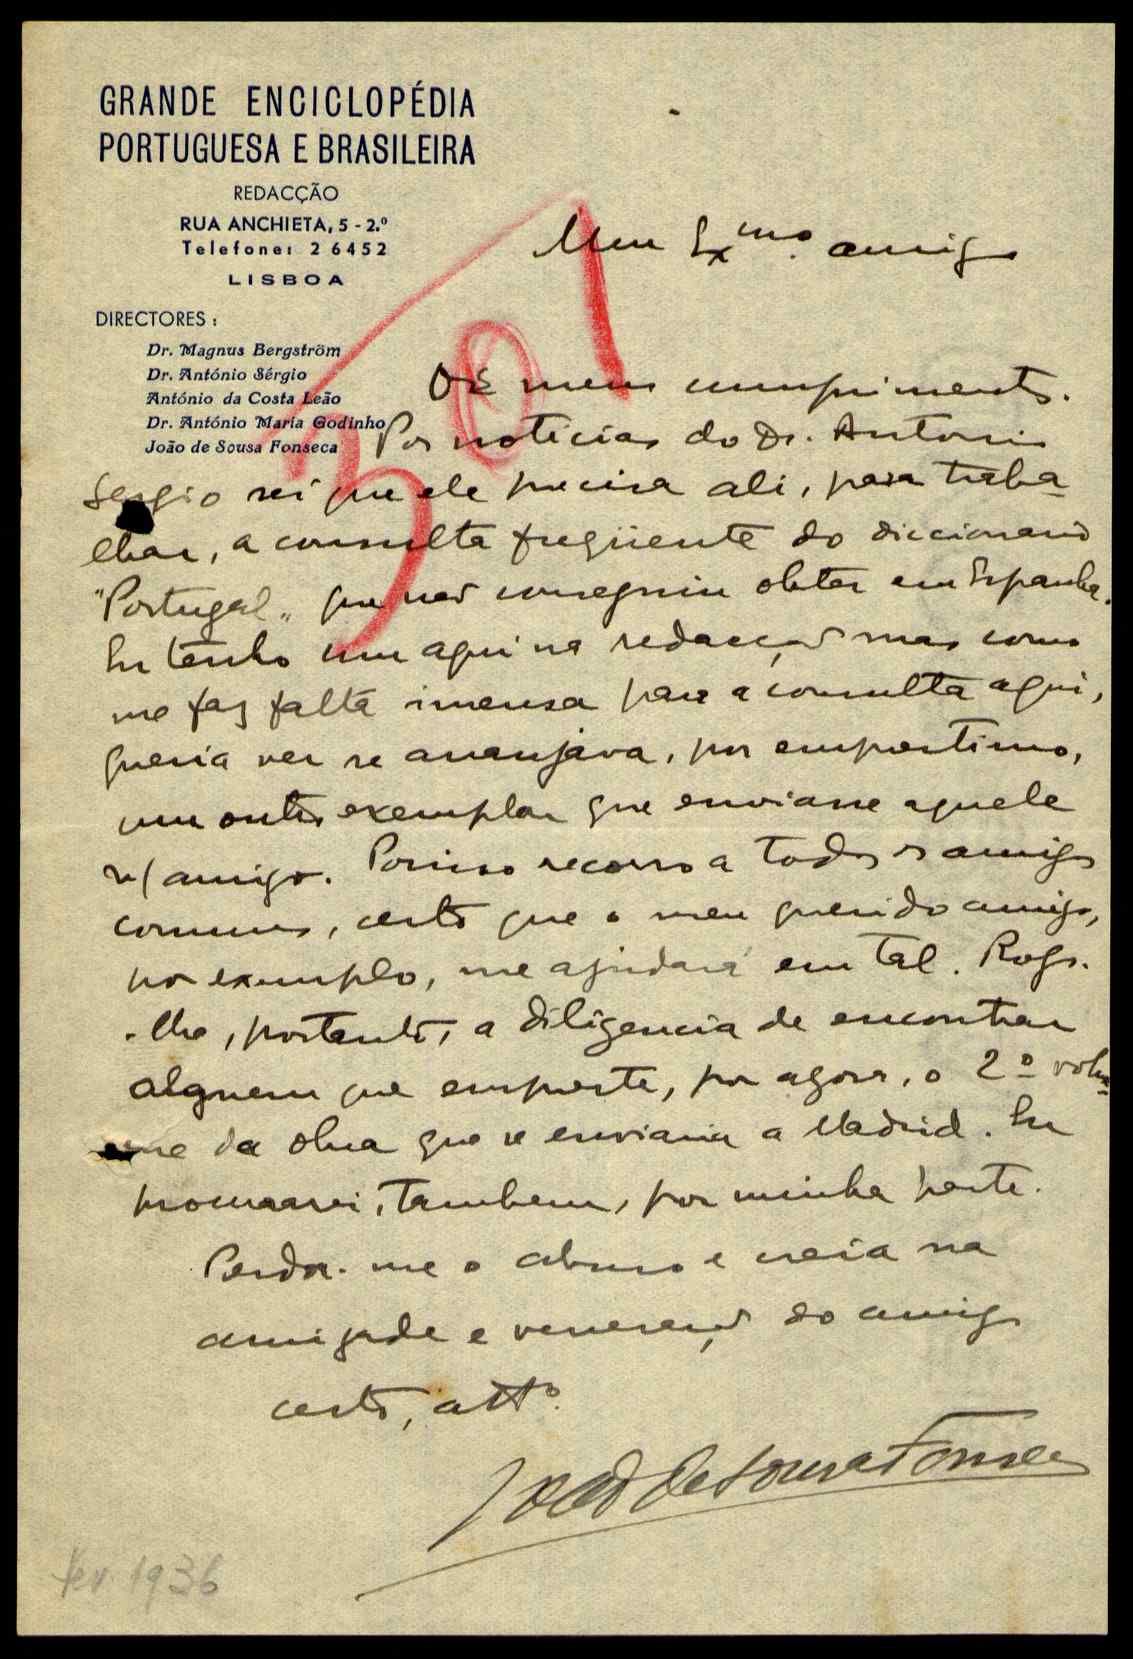 GRANDE ENCICLOPÉDIA
PORTUGUESA E BRASILEIRA
REDACÇÃO
RUA ANCHIETA, 5 - 2.º
Telefone: 2 6452
LISBOA
DIRECTORES:
Dr. Magnus Bergström
Dr. António Sérgio
António da Costa Leão
Dr. António Maria Godinho
João de Sousa Fonseca
301
Meu Exmo. amigo
Os meus cumprimentos.
Por noticias do Dr. Antonio
Sergio sei que ele precisa ali, para traba-
lhar, a consulta freqüente do diccionario
"Portugal" que não conseguiu obter em Espanha.
Eu tenho um aqui na redacção mas como
me faz falta imensa para a consulta aqui,
queria ver se arranjava, por emprestimo,
um outro exemplar que enviasse aquele
n/ amigo. Por isso recorro a todos os amigos
comuns, certo que o meu querido amigo,
por exemplo, me ajudará em tal. Rogo-
-lhe, portanto, a diligencia de encontrar
alguem que empreste, por agora, o 2º volu-
me da obra que se enviaria a Madrid. Eu
procurarei, tambem, por minha parte.
Perdoe-me o abuso e creia na
amizade e veneração do amigo
certo, attº.
João de Sousa Fonseca
fev. 1936